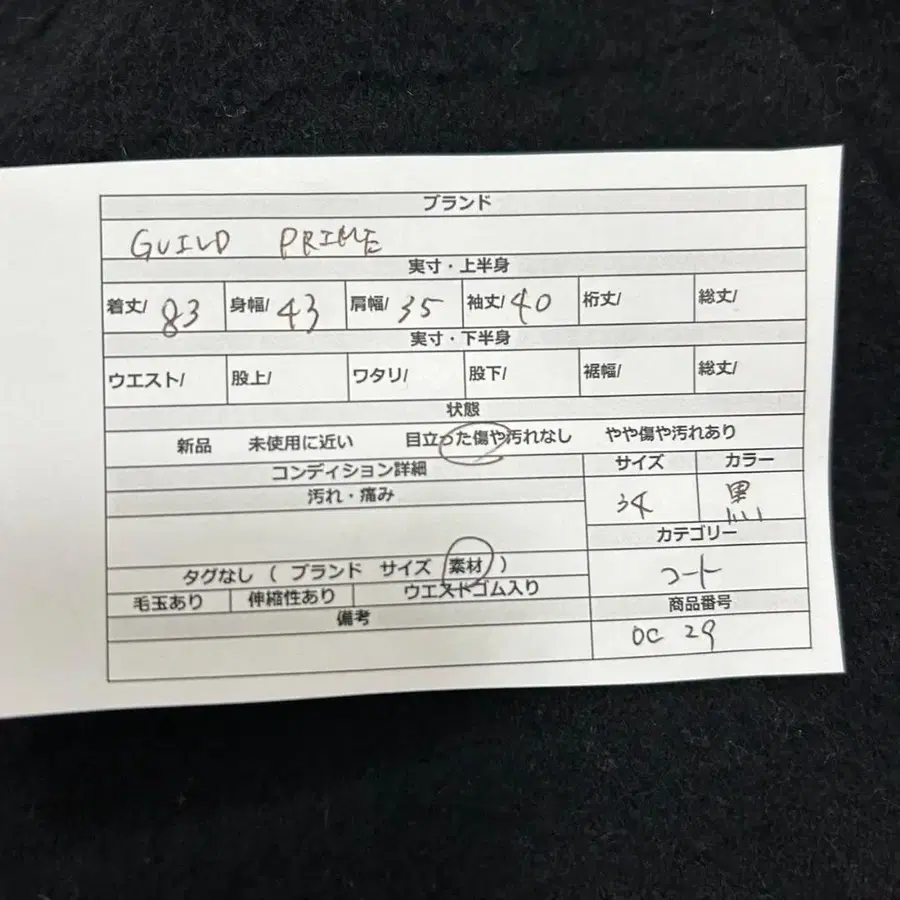 ブランド
GUILD PRIME
実寸・上半身
着丈/ 83 身幅/ 43 肩幅/ 35 袖丈/ 40 裄丈/ 総丈/
実寸・下半身
ウエスト/ 股上/ ワタリ/ 股下/ 裾幅/ 総丈/
状態
新品 未使用に近い 目立った傷や汚れなし やや傷や汚れあり
コンディション詳細 サイズ カラー
汚れ・痛み
34 黒
カテゴリー
タグなし ( ブランド サイズ 素材 )
コート
毛玉あり 伸縮性あり ウエストゴム入り
商品番号
備考
OC 29